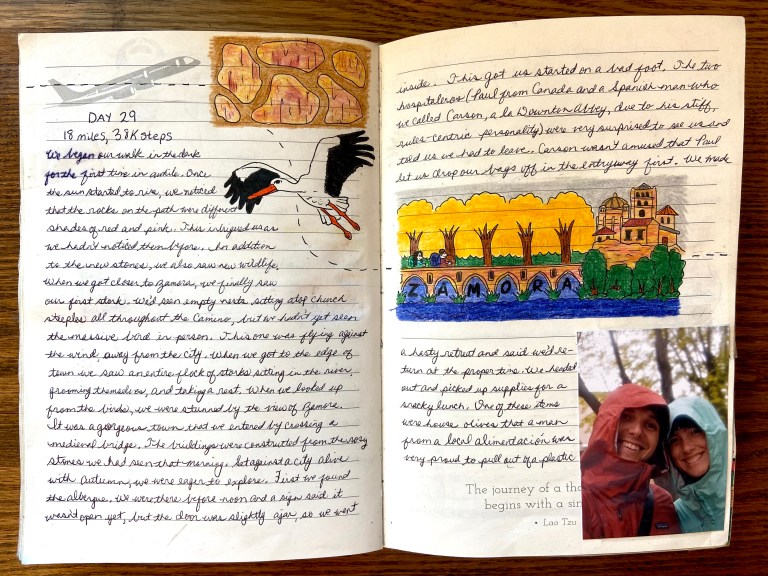 DAY 29
18 miles, 38K steps
We began our walk in the dark
for the first time in awhile. Once
the sun started to rise, we noticed
that the rocks on the path were different
shades of red and pink. This intrigued us as
we hadn't noticed them before. In addition
to the new stones, we also saw new wildlife.
When we got closer to Zamora, we finally saw
our first stork. We'd seen empty nests sitting atop church
steeples all throughout the Camino, but we hadn't yet seen
the massive bird in person. This one was flying against
the wind, away from the city. When we got to the edge of
town we saw an entire flock of storks sitting in the river,
grooming themselves, and taking a rest. When we looked up
from the birds, we were stunned by the view of Zamora.
It was a gorgeous town that we entered by crossing a
medieval bridge. The buildings were constructed from the rosy
stones we had seen that morning. Set against a city alive
with autumn, we were eager to explore. First we found
the albergue. We were there before noon and a sign said it
wasn't open yet, but the door was slightly ajar, so we went
inside. This got us started on a bad foot. The two
hospitaleros (Paul from Canada and a Spanish man who
we called Carson, a la Downton Abbey, due to his stiff,
rules-centric personality) were very surprised to see us and
told us we had to leave. Carson wasn't amused that Paul
let us drop our bags off in the entryway first. We made
ZAMORA
a hasty retreat and said we'd re-
turn at the proper time. We headed
out and picked up supplies for a
snacky lunch. One of these items
were house olives that a man
from a local alimentación was
very proud to pull out of a plastic
The journey of a tho
begins with a sin
• Lao Tzu